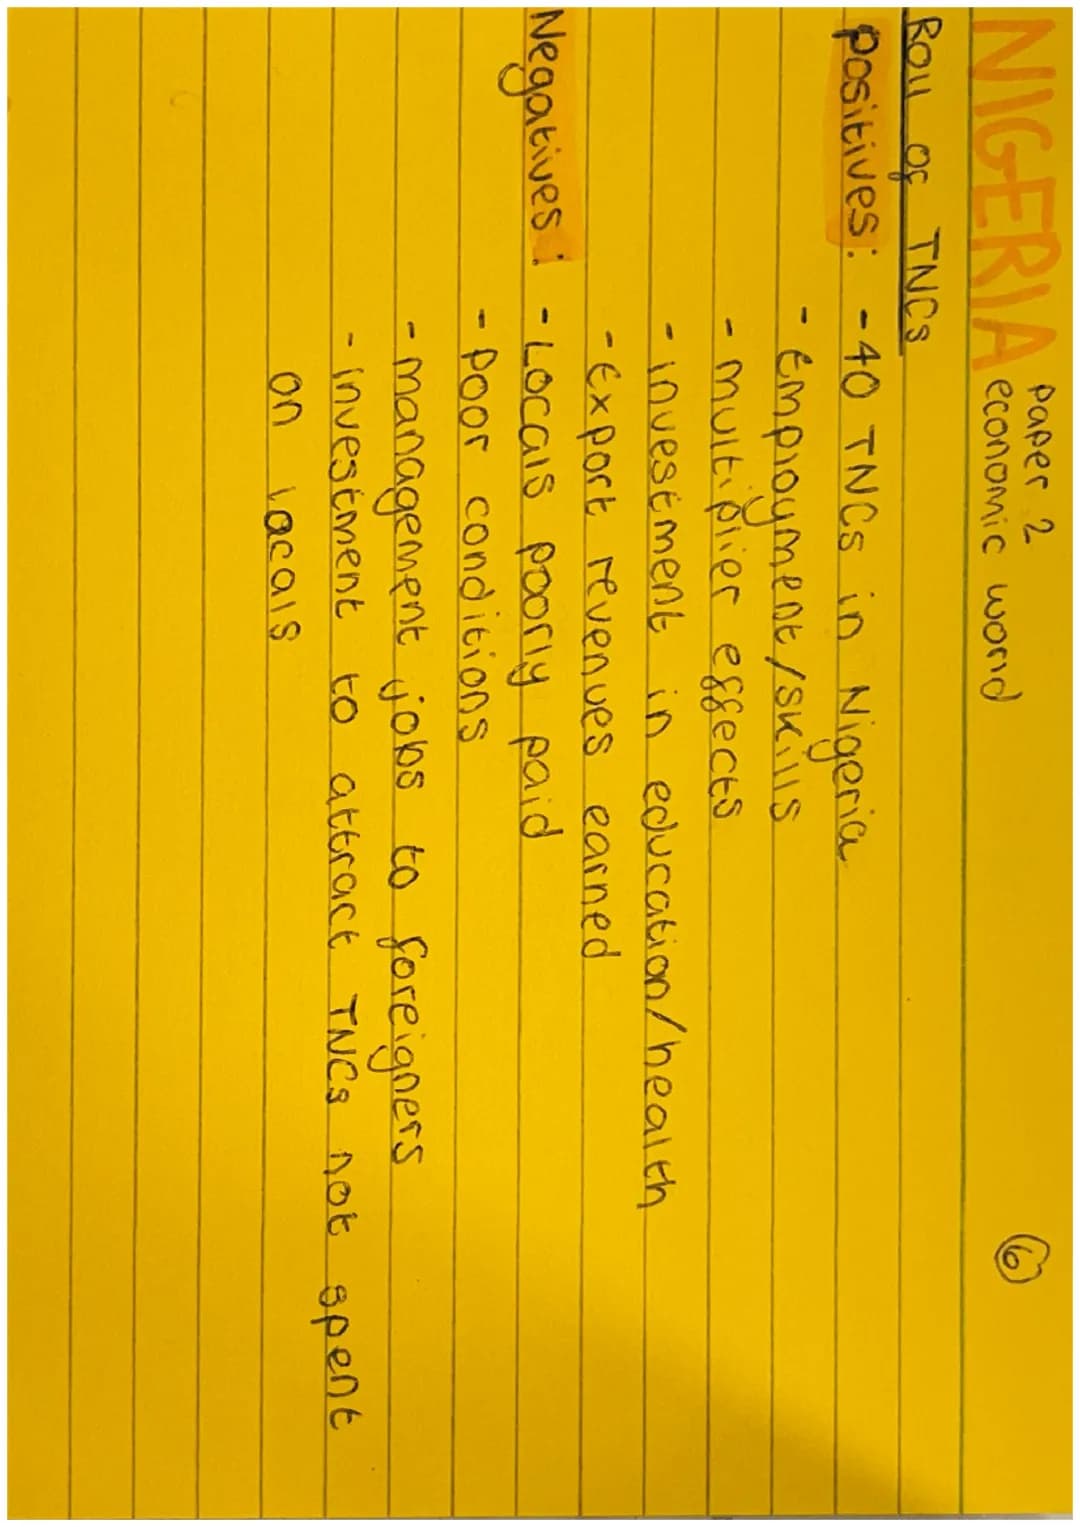 NIGERIA
paper 2
economic world
6
Roll of TNCs
Positives: - 40 TNCs in Nigeria
- Employment/skills
- multiplier effects
- investment in education/health
- Export revenues earned
Negatives: - Locals poorly paid
- Poor conditions
- management jobs to foreigners
- investment to attract TNCs not spent
on locals